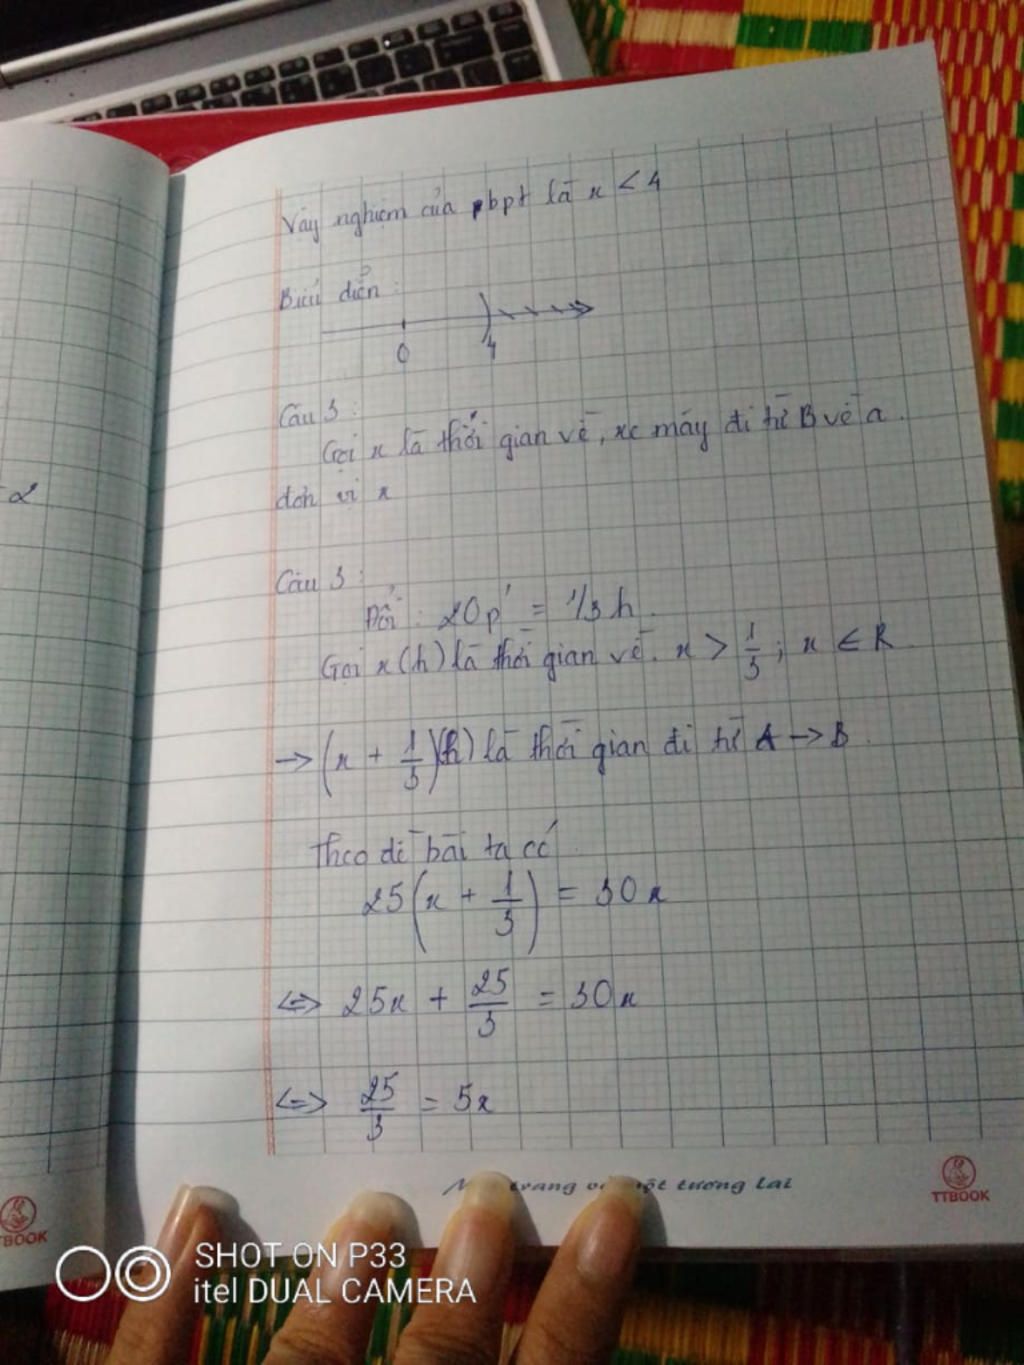 Vậy nghiệm của bpt là x < 4
Biểu diễn:
0 4
Câu 3:
Gọi x là thời gian về, xe máy đi từ B về a.
đơn vị x
-2
Câu 3:
Đổi: 20p' = 1/3 h.
Gọi x(h) là thời gian về. x > 1/3; x ∈ R.
→ (x + 1/3)(h) là thời gian đi từ A → B.
Theo đề bài ta có
25(x + 1/3) = 30x
<=> 25x + 25/3 = 30x
<=> 25/3 = 5x
trang tương lai
TTBOOK
TBOOK
SHOT ON P33
itel DUAL CAMERA